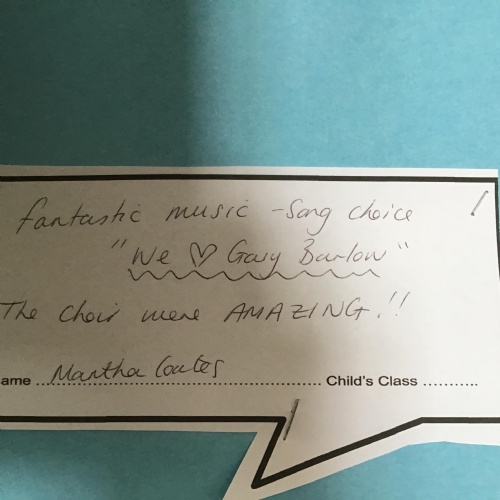 fantastic music - Song choice
"We ♡ Gary Barlow"
The choir were AMAZING!!
ame ........ Martha Coates ........ Child's Class ...........